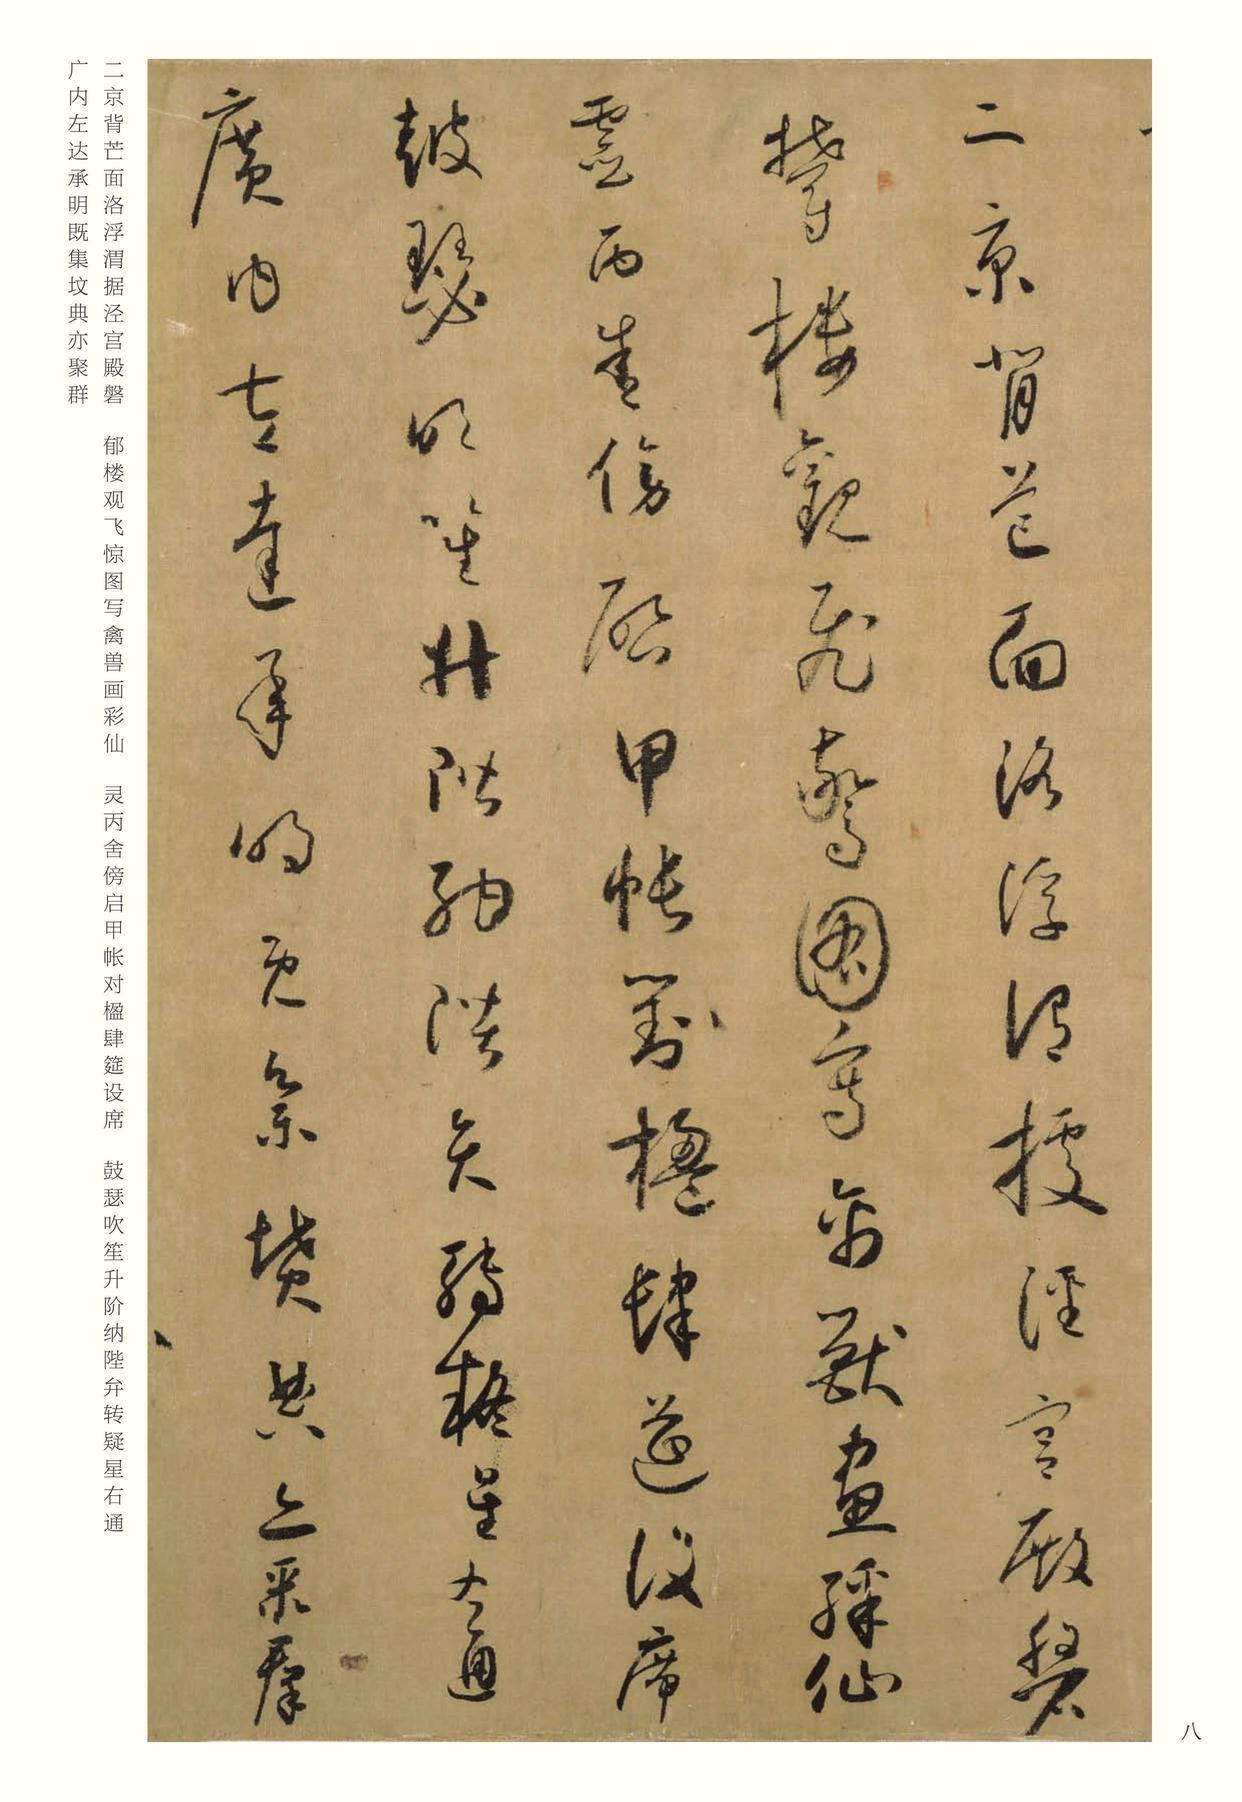 二京背芒面洛浮渭據涇宮殿磐
欝樓觀飛驚圖寫禽獸畫綵仙
靈丙舍傍啟甲帳對楹肆筵設席
鼓瑟吹笙升階納陛弁轉疑星右通
廣內左達承明既集墳典亦聚群
二京背芒面洛浮渭据泾宫殿磐　郁楼观飞惊图写禽兽画彩仙　灵丙舍傍启甲帐对楹肆筵设席　鼓瑟吹笙升阶纳陛弁转疑星右通
广内左达承明既集坟典亦聚群
八